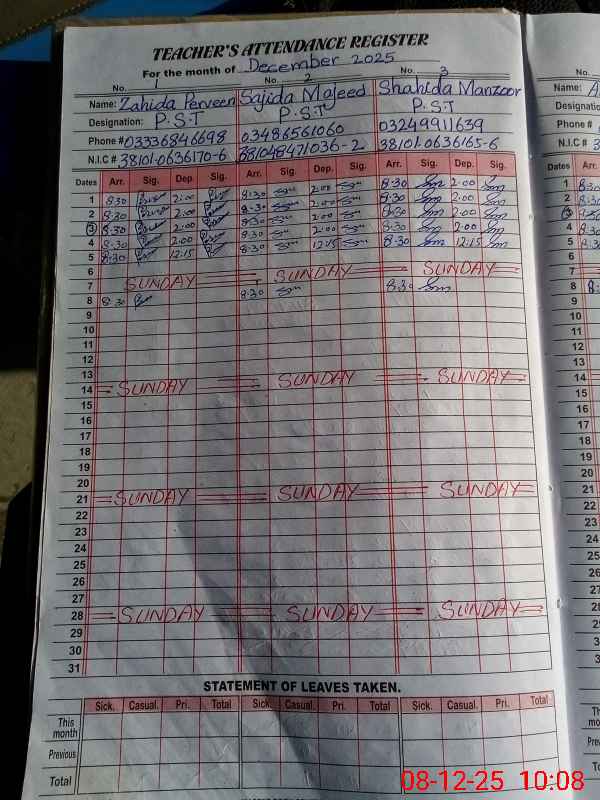 TEACHER'S ATTENDANCE REGISTER
For the month of December 2025
No. 1 No. 2 No. 3
Name: Zahida Perveen Sajida Majeed Shahida Manzoor
Designation: P.S.T P.S.T P.S.T
Phone # 03336846698 03486561060 03249911639
N.I.C # 38101-0636170-6 381048471036-2 38101-0636165-6
Dates Arr. Sig. Dep. Sig. Arr. Sig. Dep. Sig. Arr. Sig. Dep. Sig.
1 8:30 2:00 8:30 2:00 8:30 2:00
2 8:30 2:00 8:30 2:00 8:30 2:00
3 8:30 2:00 8:30 2:00 8:30 2:00
4 8:30 2:00 8:30 2:00 8:30 2:00
5 8:30 12:15 8:30 12:15 8:30 12:15
6
7 SUNDAY SUNDAY SUNDAY
8 8:30 8:30 8:30
9
10
11
12
13
14 SUNDAY SUNDAY SUNDAY
15
16
17
18
19
20
21 SUNDAY SUNDAY SUNDAY
22
23
24
25
26
27
28 SUNDAY SUNDAY SUNDAY
29
30
31
STATEMENT OF LEAVES TAKEN.
Sick. Casual. Pri. Total Sick. Casual. Pri. Total Sick. Casual. Pri. Total
This month
Previous
Total
08-12-25 10:08